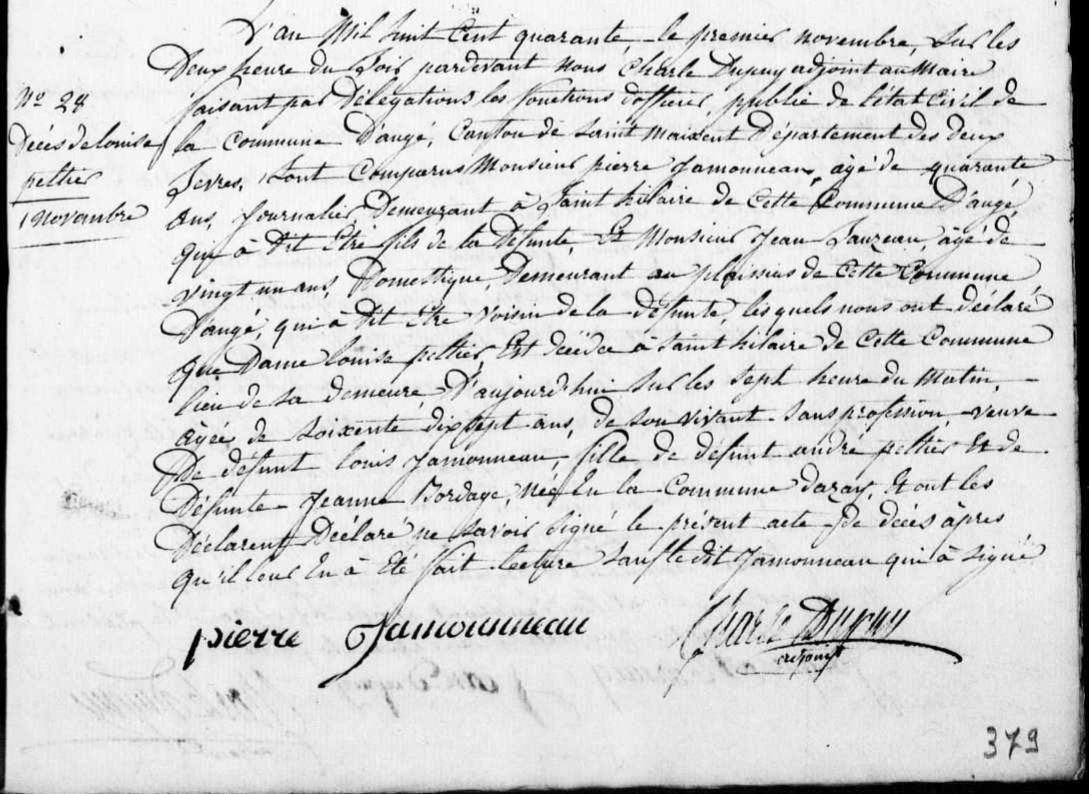 L'an Mil huit Cent quarante, le premier novembre, Sur les
Deux heure du Soir pardevant nous Charle Dupuy adjoint au Maire
faisant par Délégations les fonctions dofficier public de létat Civil de
la Commune D'augé, Canton de Saint Maixent Département des deux
Sevres, Sont Comparus Monsieur pierre Jamonneau, âgé de quarante
ans, Journalier, Demeurant à Saint hilaire de Cette Commune D'augé,
qui à Dit Etre fils de la Défunte, Et Monsieur Jean Sauzeau, âgé de
vingt un ans, Domestique, Demeurant au plaissius de Cette Commune
D'augé, qui à Dit Etre voisin de la défunte, lesquels nous ont déclaré
que Dame louise peltier Est décédée à Saint hilaire de Cette Commune
lieu de sa demeure D'aujourd'hui Sur les Sept heure du Matin,
âgée de Soixente dix Sept ans, de Son vivant Sans profession, veuve
De défunt louis Jamonneau, fille de défunt andré peltier Et de
Défunte Jeanne Bordage, Née En la Commune dazay, Et ont les
Déclarent Déclaré ne Savoir Signé le présent acte de décès âpres
qu'il leur En à Eté fait lecture Sauf le dit Jamonneau qui à Signé
N° 28
Décès de louise
peltier
1 novembre
pierre Jamounneau
Charle Dupuy
adjoint
379